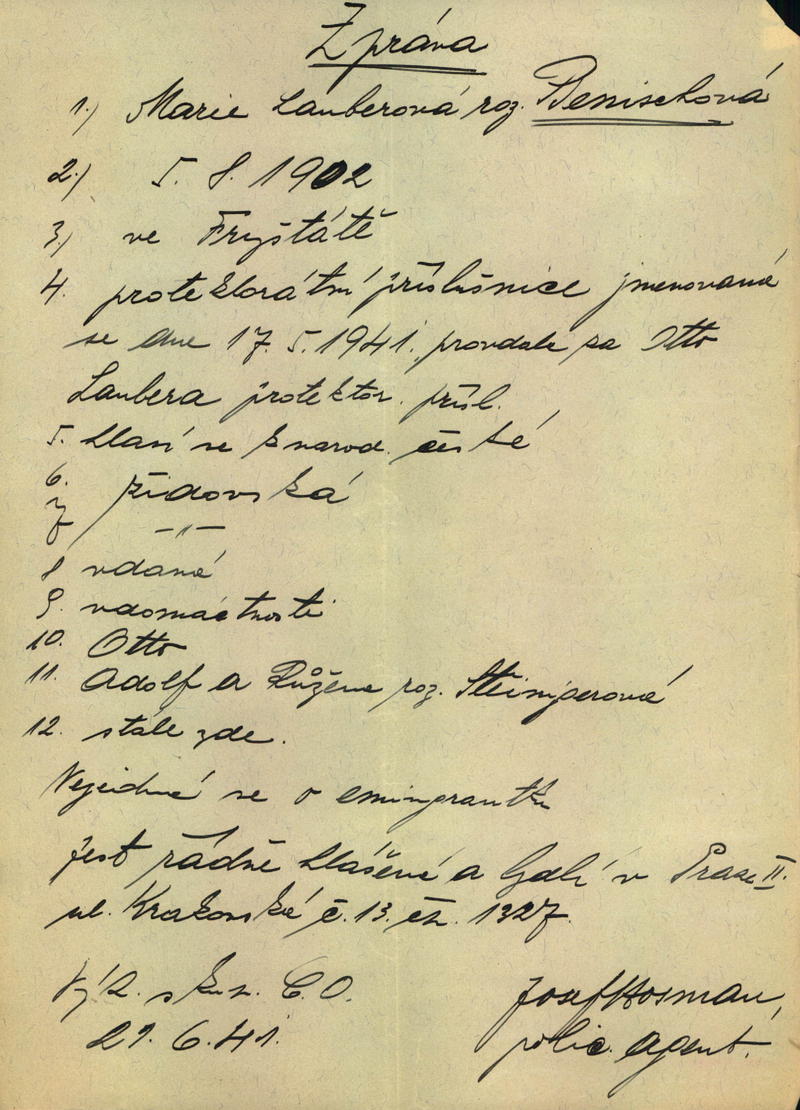 Zpráva
1.) Marie Lauberová roz. Benischová
2.) 5. 8. 1902
3.) ve Fryštátě
4. protektorátní příslušnice jmenovaná
se dne 17. 5. 1941. provdala za Otto
Laubera protektor. přísl.
5. hlásí se k národ. české
6. židovská
7 -"-
8 vdaná
9. vdomáctnosti
10. Otto
11. Adolf a Růžena roz.
12. stále zde.
Nejedná se o emingrantku
jest řádně hlášená a bydlí v Praze II.
ul. Krakovská č. 13. čp. 1327.
29. 6. 41.
Josef Hosman,
polic. agent.